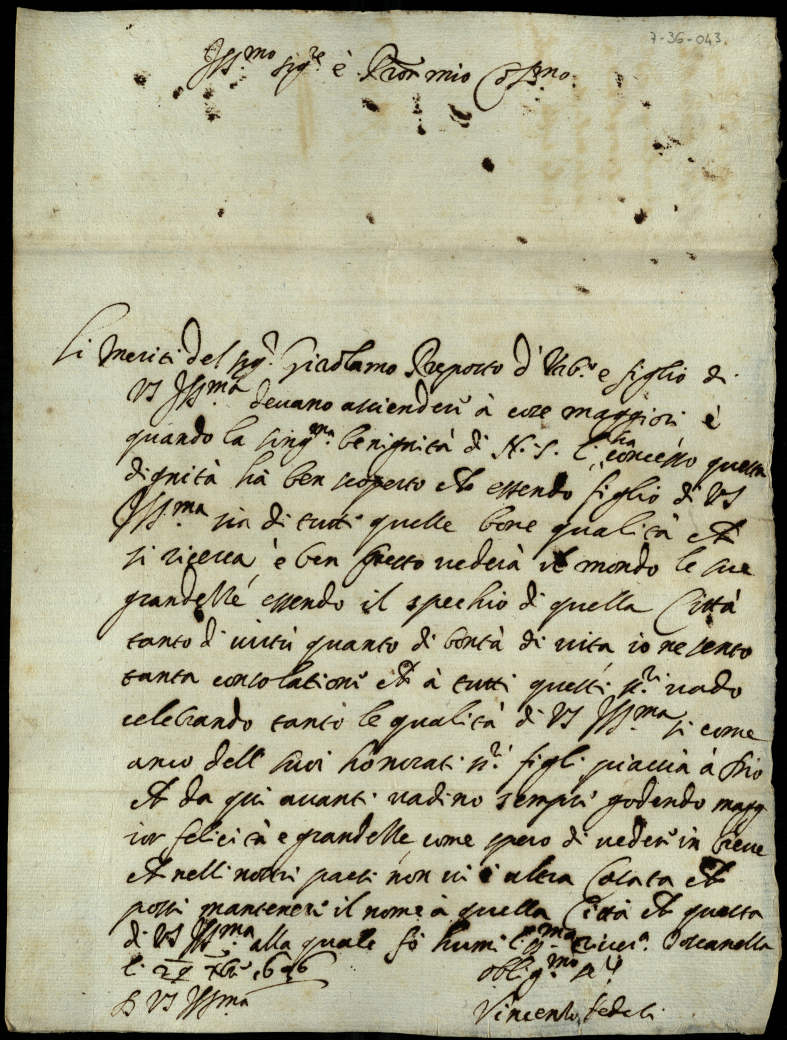 7-36-043.
Ill.mo sig.re è Pron mio Oss.mo
Li meriti del sig.r Girolamo Preposto d' Urb.o e figlio di
VS Ill.ma devano ascenderi à cose maggiori è
quando la sing.ma benignità di N. S. li ha concesso questa
dignità hà ben scoperto ch essendo figlio di VS
Ill.ma sia di tutti quelle bone qualità ch
si ricerca, è ben presto vederà il mondo le sue
grandezze, essendo il spechio di quella Città
tanto di virtù quanto di bontà di vita io ne sento
tanta consolationi ch à tutti questi s.ri vado
celebrando tanto le qualità di VS Ill.ma si come
anco dell suoi honorati s.ri figli piaccia à Dio
ch da qui avanti vadino sempri godendo magg
ior felicità e grandezze, come spero di vederi in breve
ch nelli nostri paesi non vi è altra Casata ch
possi manteneri il nome à quella Città ch questa
di VS Ill.ma alla quale fò humilis.ma river.a Toscanella
li 29 Xbr 1646
D VS Ill.ma
oblig.mo se.r
Vincenzo Fedeli